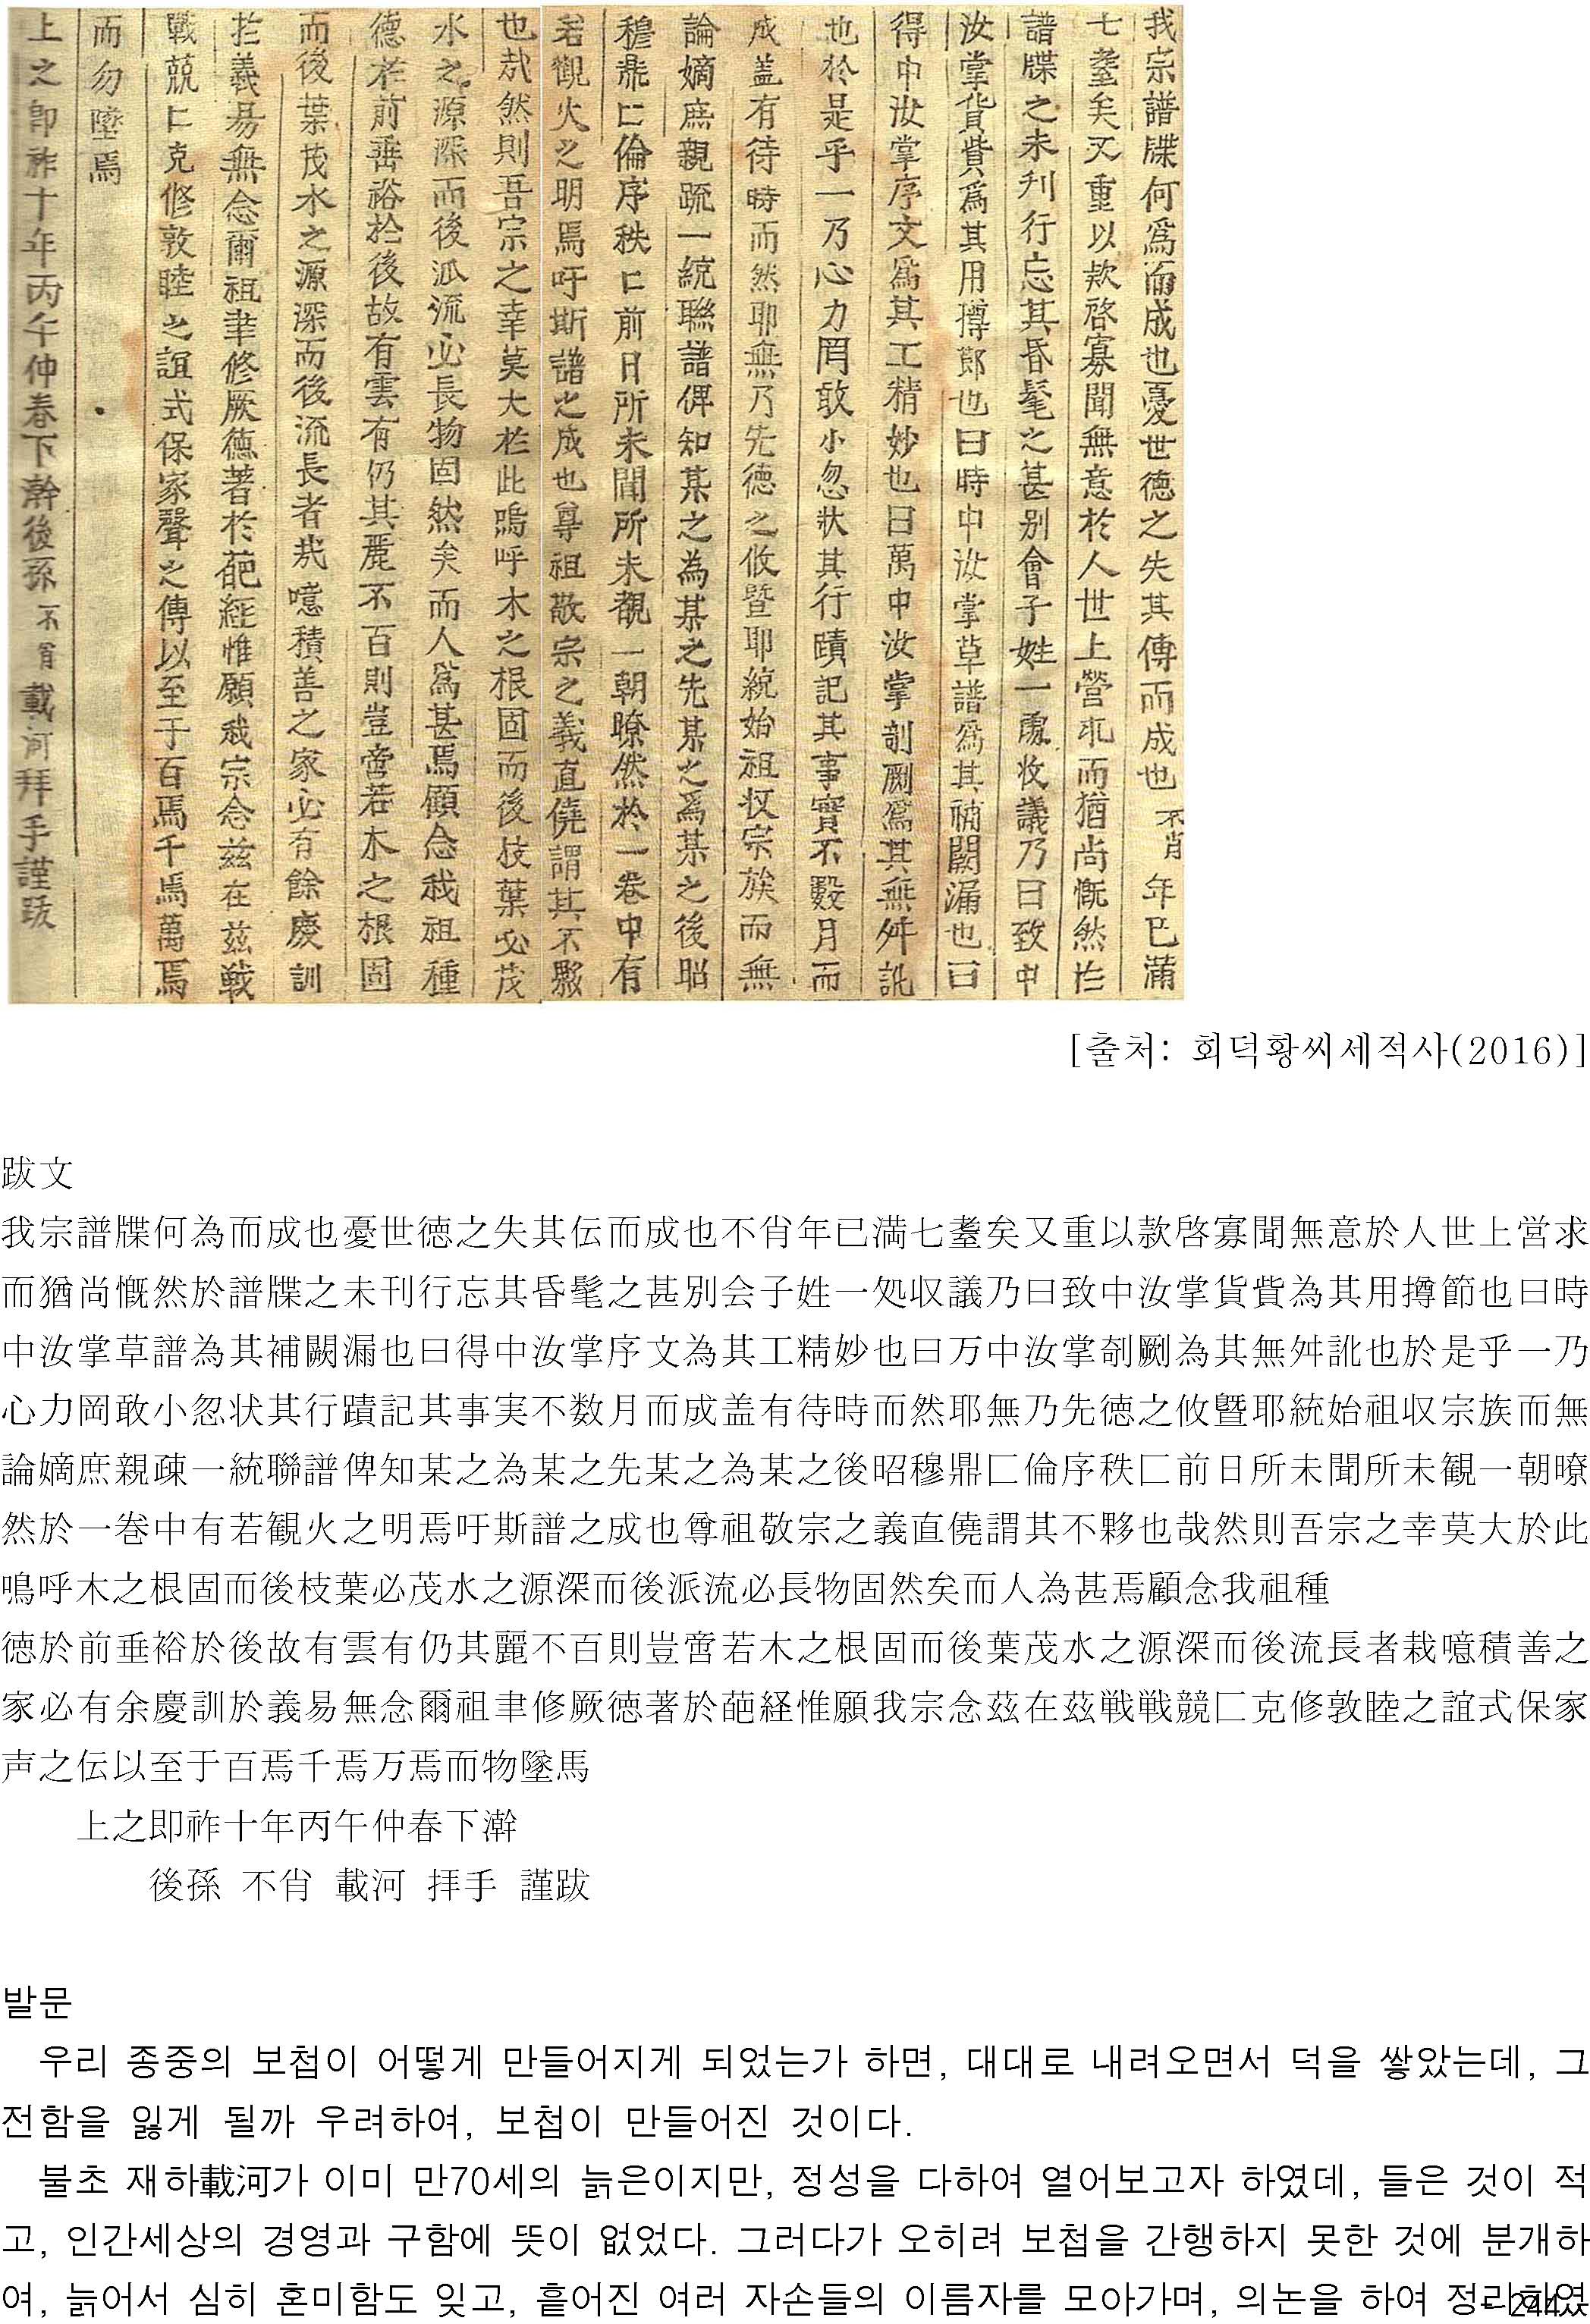 我宗譜牒何爲而成也憂世徳之失其傳而成也不肖年已滿
七耋矣又重以款啓寡聞無意於人世上營求而猶尚慨然於
譜牒之未刊行忘其昏髦之甚別會子姓一處收議乃曰致中
汝掌貨貲爲其用撙節也曰時中汝掌草譜爲其補闕漏也曰
得中汝掌序文爲其工精妙也曰萬中汝掌剞劂爲其無舛訛
也於是乎一乃心力罔敢小忽状其行蹟記其事實不數月而
成盖有待時而然耶無乃先徳之攸曁耶統始祖收宗族而無
論嫡庶親疏一統聯譜俾知某之為某之先某之爲某之後昭
穆鼎匚倫序秩匚前日所未聞所未覩一朝瞭然於一巻中有
若觀火之明焉吁斯譜之成也尊祖敬宗之義直僥謂其不夥
也哉然則吾宗之幸莫大於此嗚呼木之根固而後枝葉必茂
水之源深而後派流必長物固然矣而人爲甚焉顧念我祖種
徳於前垂裕於後故有雲有仍其麗不百則豈啻若木之根固
而後葉茂水之源深而後流長者哉噫積善之家必有餘慶訓
於義易無念爾祖聿修厥徳著於葩經惟願我宗念茲在茲戰
戰兢匚克修敦睦之誼式保家聲之傳以至于百焉千焉萬焉
而勿墜焉
上之卽祚十年丙午仲春下澣後孫不肖載河拜手謹跋
[출처: 회덕황씨세적사(2016)]
跋文
我宗譜牒何為而成也憂世徳之失其伝而成也不肖年已満七耋矣又重以款啓寡聞無意於人世上営求
而猶尚慨然於譜牒之未刊行忘其昏髦之甚別会子姓一処収議乃曰致中汝掌貨貲為其用撙節也曰時
中汝掌草譜為其補闕漏也曰得中汝掌序文為其工精妙也曰万中汝掌剞劂為其無舛訛也於是乎一乃
心力罔敢小忽状其行蹟記其事実不数月而成盖有待時而然耶無乃先徳之攸曁耶統始祖収宗族而無
論嫡庶親疎一統聯譜俾知某之為某之先某之為某之後昭穆鼎匚倫序秩匚前日所未聞所未観一朝瞭
然於一巻中有若観火之明焉吁斯譜之成也尊祖敬宗之義直僥謂其不夥也哉然則吾宗之幸莫大於此
嗚呼木之根固而後枝葉必茂水之源深而後派流必長物固然矣而人為甚焉顧念我祖種
徳於前垂裕於後故有雲有仍其麗不百則豈啻若木之根固而後葉茂水之源深而後流長者栽噫積善之
家必有余慶訓於義易無念爾祖聿修厥徳著於葩経惟願我宗念茲在茲戦戦競匚克修敦睦之誼式保家
声之伝以至于百焉千焉万焉而物墜馬
上之即祚十年丙午仲春下澣
後孫 不肖 載河 拝手 謹跋
발문
우리 종중의 보첩이 어떻게 만들어지게 되었는가 하면, 대대로 내려오면서 덕을 쌓았는데, 그
전함을 잃게 될까 우려하여, 보첩이 만들어진 것이다.
불초 재하載河가 이미 만70세의 늙은이지만, 정성을 다하여 열어보고자 하였데, 들은 것이 적
고, 인간세상의 경영과 구함에 뜻이 없었다. 그러다가 오히려 보첩을 간행하지 못한 것에 분개하
여, 늙어서 심히 혼미함도 잊고, 흩어진 여러 자손들의 이름자를 모아가며, 의논을 하여 정리하였